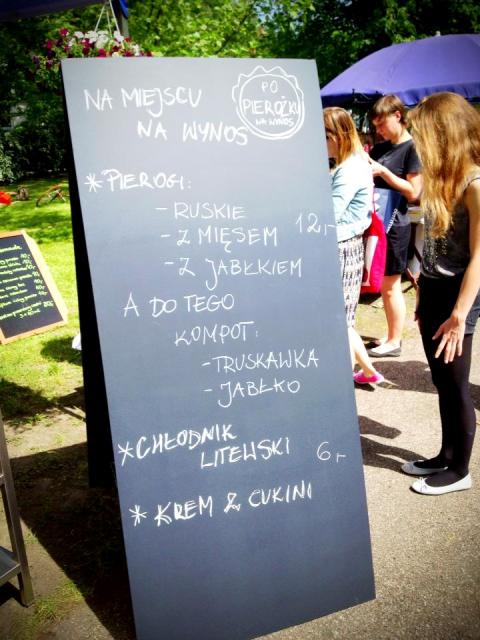 NA MIEJSCU
NA WYNOS
PO
PIEROŻKU
NA WYNOS
* PIEROGI:
- RUSKIE
- Z MIĘSEM 12,-
- Z JABŁKIEM
A DO TEGO
KOMPOT:
- TRUSKAWKA
- JABŁKO
* CHŁODNIK
LITEWSKI 6,-
* KREM Z CUKINI